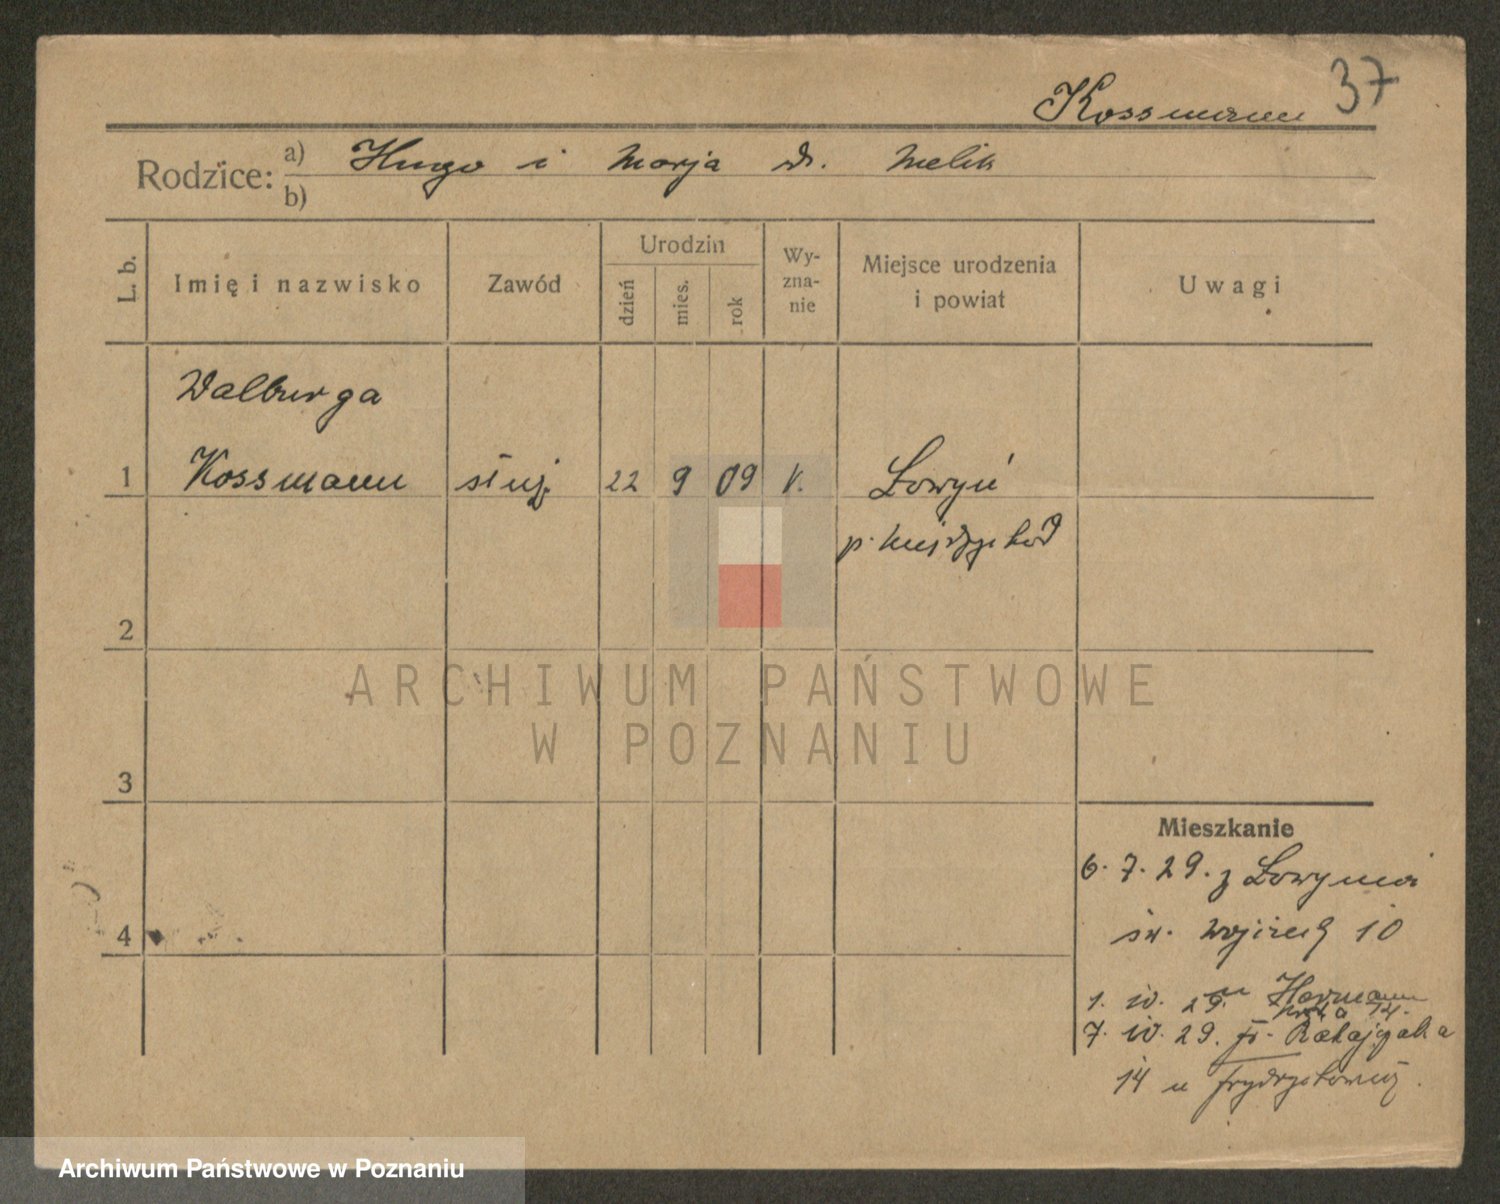 37
Kossmann
Rodzice: a) Hugo i Marja dr. Melik
b)
L. b. Imię i nazwisko Zawód Urodzin dzień mies. rok Wy-zna-nie Miejsce urodzenia i powiat Uwagi
Walburga
1 Kossmann służ. 22 9 09 k. Łowyń
p. Międzychód
2
ARCHIWUM PAŃSTWOWE
W POZNANIU
3
Mieszkanie
6. 7. 29. z Łowynia
4 św. Wojciech 10
1. 10. 29. u Hermann
14.
7. 10. 29. Fr. Ratajczaka
14 u Frydrychowicz.
Archiwum Państwowe w Poznaniu